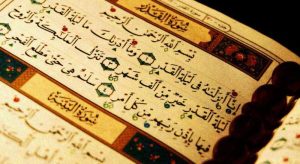 سُورَةُ القَدْرِ
بِسْمِ اللَّهِ الرَّحْمَٰنِ الرَّحِيمِ
إِنَّا أَنزَلْنَٰهُ فِي لَيْلَةِ الْقَدْرِ ١ وَمَا أَدْرَىٰكَ مَا لَيْلَةُ الْقَدْرِ ٢
لَيْلَةُ الْقَدْرِ خَيْرٌ مِّنْ أَلْفِ شَهْرٍ ٣ تَنَزَّلُ الْمَلَٰئِكَةُ وَالرُّوحُ
فِيهَا بِإِذْنِ رَبِّهِم مِّن كُلِّ أَمْرٍ ٤ سَلَٰمٌ هِيَ حَتَّىٰ مَطْلَعِ الْفَجْرِ
سُورَةُ البَيِّنَةِ